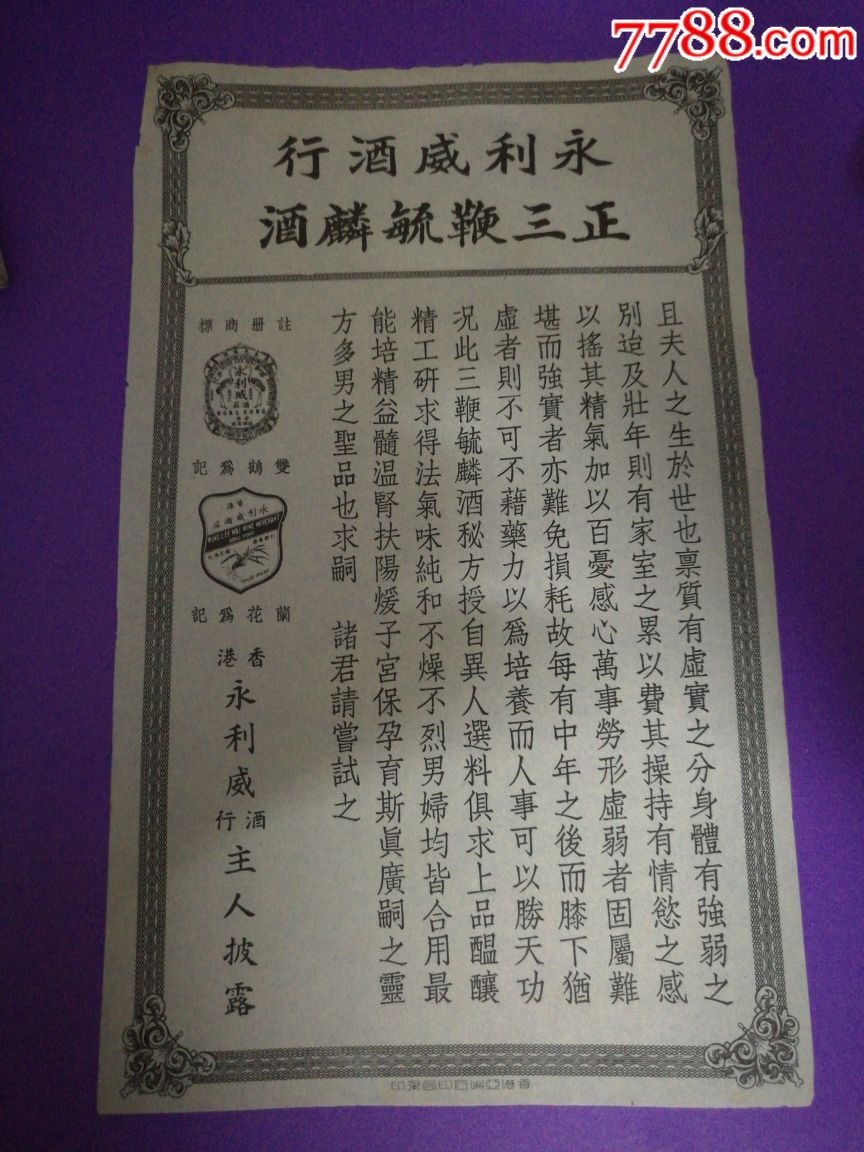 7788.com
永利威酒行
正三鞭毓麟酒
且夫人之生於世也禀質有虛實之分身體有強弱之
別迨及壯年則有家室之累以費其操持有情慾之感
以搖其精氣加以百憂感心萬事勞形虛弱者固屬難
堪而強實者亦難免損耗故每有中年之後而膝下猶
虛者則不可不藉藥力以爲培養而人事可以勝天功
况此三鞭毓麟酒秘方授自異人選料俱求上品醞釀
精工研求得法氣味純和不燥不烈男婦均皆合用最
能培精益髓温腎扶陽煖子宮保孕育斯眞廣嗣之靈
方多男之聖品也求嗣　諸君請嘗試之
註册商標
永利威
酒莊
HONG KONG
雙鶴爲記
香港
永利威酒莊
WING LEE WAI WINE MERCHANT
HONG KONG
TRADE MARK
蘭花爲記
香港
永利威
酒行
主人披露
香港亞洲石印局承印